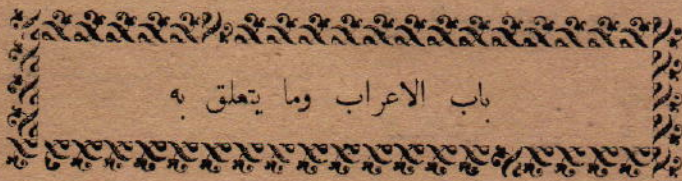 باب الاعراب وما يتعلق به